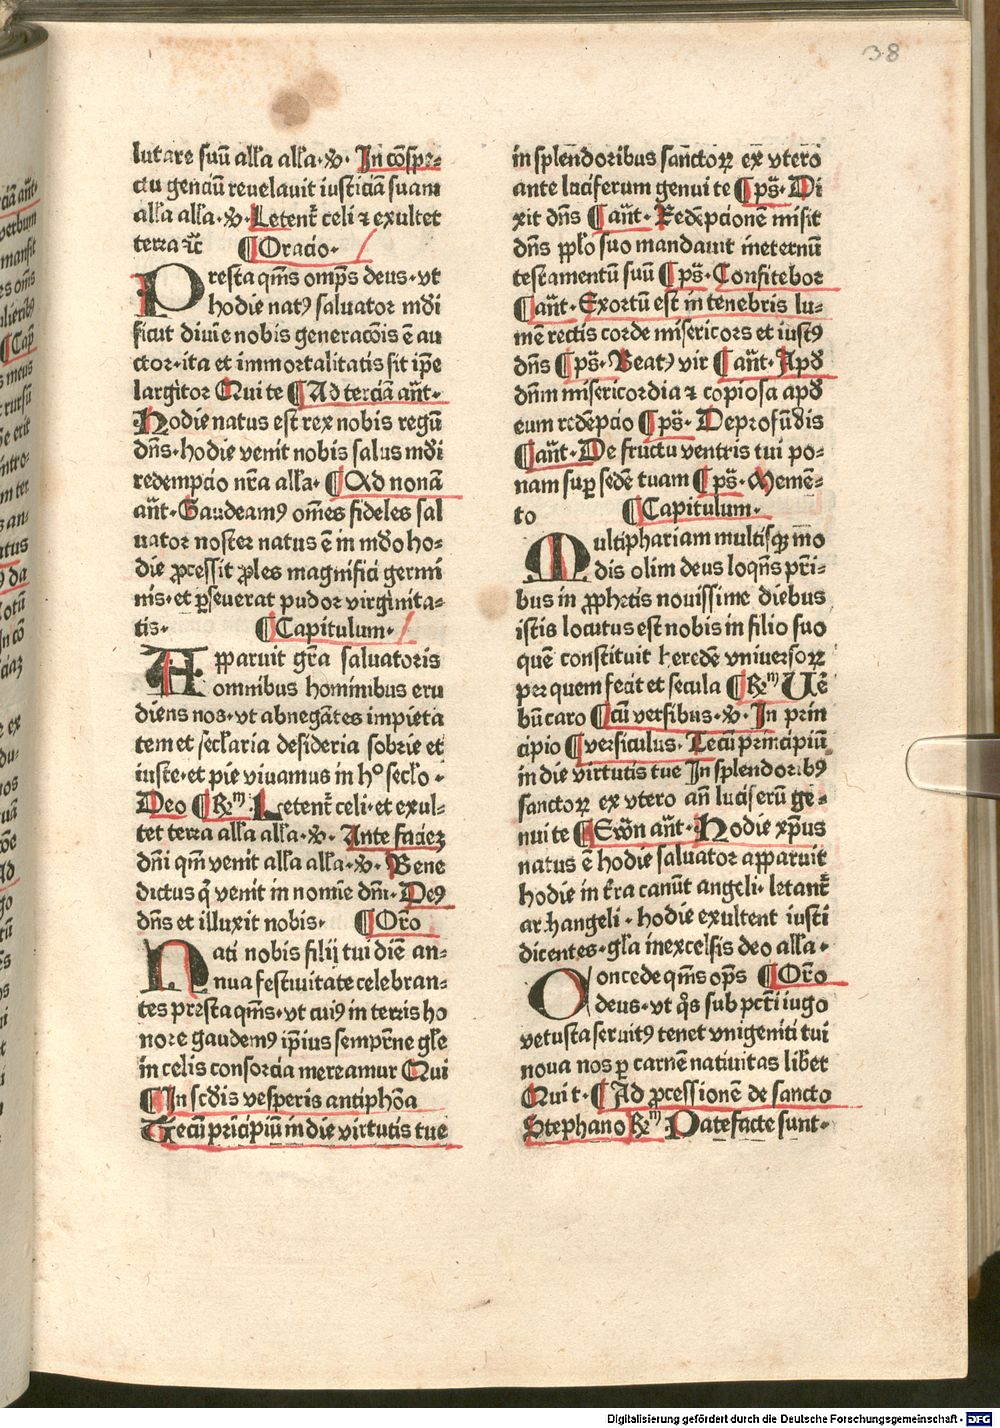 38
lutare suū alľa alľa·℣· In cōspe-
ctu genciū reuelauit iusticiā suam
alľa alľa·℣· Letent̄ celi ⁊ exultet
terra ⁊c̄ ¶Oracio·
Presta qm̄s omp̄s deus·vt
hodie natꝰ saluator mūdi
sicut diuīe nobis generacōis ē au
ctor·ita et immortalitatis sit ip̄e
largitor Qui te ¶Ad terciā añt·
Hodie natus est rex nobis regū
dn̄s·hodie venit nobis salus mūdi
redempcio nr̄a alľa· ¶Ad nonā
añt·Gaudeamꝰ om̄es fideles sal
uator noster natus ē in mūdo ho-
die ꝓcessit ꝓles magnifici germi
nis·et ꝑseuerat pudor virginita-
tis· ¶Capitulum·
Apparuit gr̄a saluatoris
omnibus hominibus eru
diens nos·vt abnegātes impieta
tem et secľaria desideria sobrie et
iuste·et pie viuamus in hͦ secľo·
Deo ¶Rm̄ Letent̄ celi·et exul-
tet terra alľa alľa·℣· Ante facieꝫ
dn̄i qm̄ venit alľa alľa·℣· Bene
dictus q̄ venit in nomīe dn̄i·Deꝰ
dn̄s et illuxit nobis· ¶Or̄o
Nati nobis filij tui diē an-
nua festiuitate celebran-
tes presta qm̄s·vt cuiꝰ in terris ho
nore gaudemꝰ ip̄ius semprne gľe
in celis consorcia mereamur Qui
¶In scd̄is vesperis antiphōa
Tecū pricipiū in die virtutis tue
in splendoribus sanctoꝝ ex vtero
ante luciferum genui te ¶ps̄·Di
xit dn̄s ¶añt·Redēpcionē misit
dn̄s pplo suo mandauit īneternū
testamentū suū ¶ps̄·Confitebor
¶añt·Exortū est in tenebris lu-
mē rectis corde misericors et iustꝰ
dn̄s ¶ps̄·Beatꝰ vir ¶añt·Apd̄
dn̄m misericordia ⁊ copiosa apd̄
eum redēpcio ¶ps̄·Deprofūdis
¶añt·De fructu ventris tui po-
nam suꝑ sedē tuam ¶ps̄·Memē-
to ¶Capitulum·
Multiphariam multisqꝫ mo
dis olim deus loqn̄s pr̄i-
bus in ꝓphetis nouissime diebus
istis locutus est nobis in filio suo
quē constituit heredē vniuersoꝝ
per quem fecit et secula ¶Rm̄ Uē
bū caro ¶cū versibus·℣· In prin
cipio ¶versiculus·Tecū principiū
in die virtutis tue In splendoribꝰ
sanctoꝝ ex vtero an̄ luciserū ge-
nui te ¶Ewn̄ añt·Hodie xp̄us
natus ē hodie saluator apparuit
hodie in t̄ra canūt angeli·letant̄
archangeli·hodie exultent iusti
dicentes·gľa inexcelsis deo alľa·
Concede qm̄s op̄s ¶Or̄o
deus·vt q̄s sub pcti iugo
vetusta seruitꝰ tenet vnigeniti tui
noua nos ꝑ carnē natiuitas liberet
Qui t·¶Ad ꝓcessionē de sancto
Stephano Rm̄ Patefacte sunt·
Digitalisierung gefördert durch die Deutsche Forschungsgemeinschaft - DFG